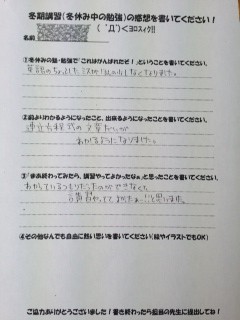 冬期講習(冬休み中の勉強)の感想を書いてください!
( ﾟДﾟ)<ヨロスィク!!
名前
①冬休みの塾・勉強で「これはがんばれた!」ということを書いてください。
英語のちょっとしたミスが
少なくなりました。
②前よりわかるようになったこと、出来るようになったことを書いてください。
連立方程式の文章だいが
わかるようになりました。
③「まあ終わってみたら、講習やってよかったなぁ」と思ったことを書いてください。
わかっているつもりだったのができなくて
講習やっててよかったぁ…!!と思いました。
④その他なんでも自由に熱い思いを書いてください(絵やイラストでもOK)
ご協力ありがとうございました!書き終わったら担当の先生に提出してね!